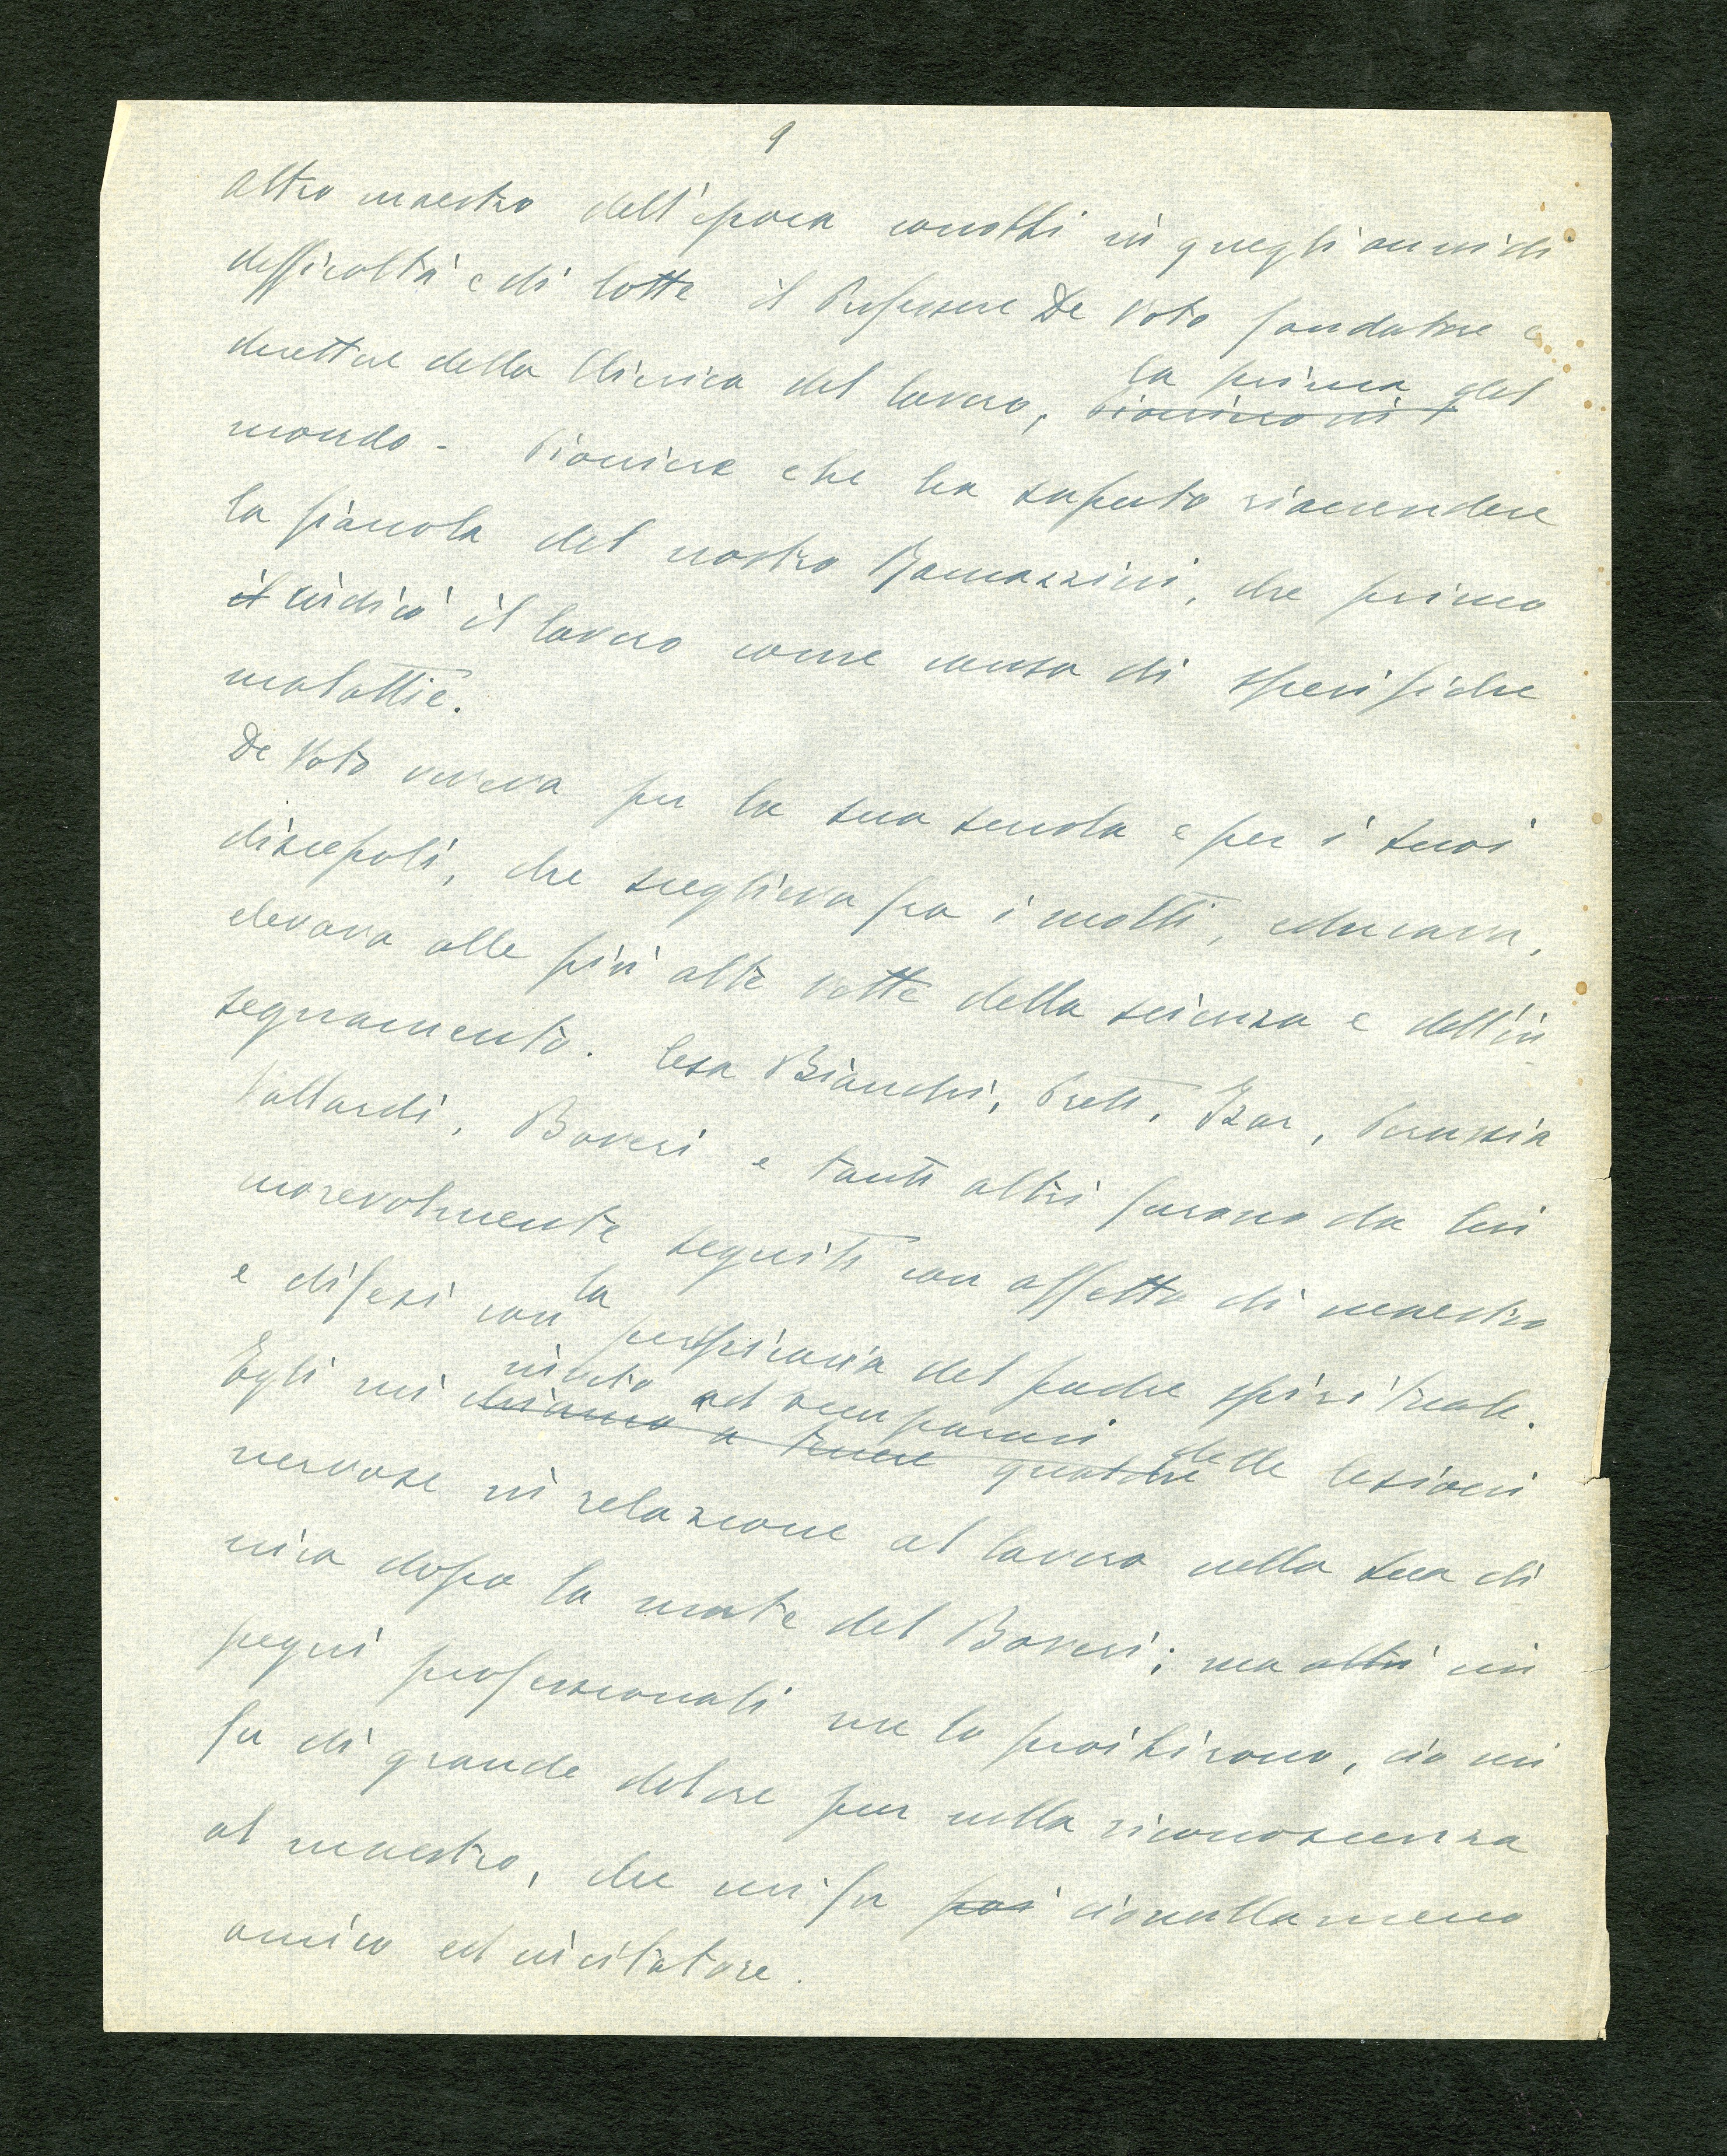 9
altro maestro dell'epoca conobbi in quegli anni di
difficoltà e di lotte il Professore De Voto fondatore e
direttore della Clinica del lavoro, la prima del
mondo - Pioniere che ha saputo riaccendere
la fiaccola del nostro Ramazzini, che primo
il indicò il lavoro come causa di specifiche
malattie.
De Voto viveva per la sua scuola e per i suoi
discepoli, che sceglieva fra i molti, educava,
elevava alle più alte vette della scienza e dell'in
segnamento. Cesa Bianchi, Preti, Izar, Perussia
Vallardi, Boveri e tanti altri furono da lui
morevolmente seguiti con affetto di maestro
e difesi con la perspicacia del padre spirituale.
Egli mi invitò ad occuparmi delle lesioni
chiamò a tenere
nervose in relazione al lavoro nella sua cli
nica dopo la morte del Boveri; ma altri im
pegni professionali me lo proibirono, ciò mi
fu di grande dolore pur nella riconoscenza
al maestro, che mi fu poi cionullameno
amico ed incitatore.